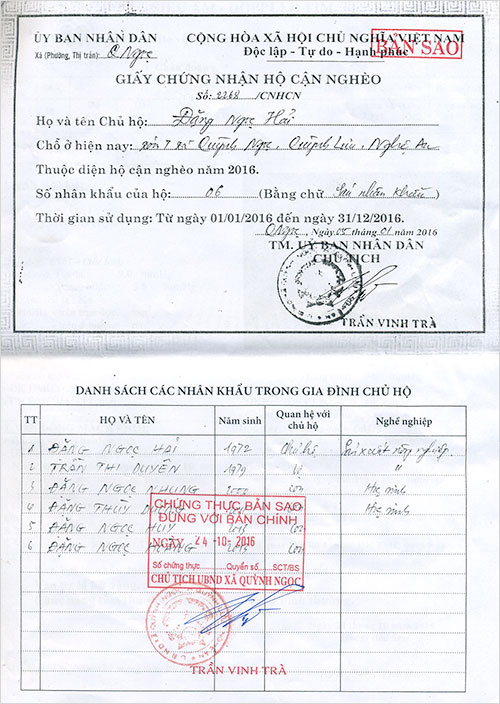 ỦY BAN NHÂN DÂN
Xã (Phường, Thị trấn): Q Ngọc
CỘNG HÒA XÃ HỘI CHỦ NGHĨA VIỆT NAM
Độc lập - Tự do - Hạnh phúc
BẢN SAO
GIẤY CHỨNG NHẬN HỘ CẬN NGHÈO
Số: 2268 /CNHCN
Họ và tên Chủ hộ: Đặng Ngọc Hải
Chỗ ở hiện nay: xóm 7 xã Quỳnh Ngọc, Quỳnh Lưu, Nghệ An
Thuộc diện hộ cận nghèo năm 2016.
Số nhân khẩu của hộ: 06 (Bằng chữ Sáu nhân khẩu)
Thời gian sử dụng: Từ ngày 01/01/2016 đến ngày 31/12/2016.
Q Ngọc, Ngày 05 tháng 01 năm 2016
TM. UỶ BAN NHÂN DÂN
CHỦ TỊCH
TRẦN VINH TRÀ
DANH SÁCH CÁC NHÂN KHẨU TRONG GIA ĐÌNH CHỦ HỘ
TT HỌ VÀ TÊN Năm sinh Quan hệ với chủ hộ Nghề nghiệp
1 ĐẶNG NGỌC HẢI 1972 Chủ hộ Sản xuất nông nghiệp
2 TRẦN THỊ DUYÊN 1979 Vợ "
3 ĐẶNG NGỌC NHUNG con Học sinh
4 ĐẶNG THUỲ con Học sinh
5 ĐẶNG NGỌC HUY con
6 ĐẶNG NGỌC con
CHỨNG THỰC BẢN SAO
ĐÚNG VỚI BẢN CHÍNH
NGÀY 24 -10- 2016
Số chứng thực: Quyển số: SCT/BS
CHỦ TỊCH UBND XÃ QUỲNH NGỌC
TRẦN VINH TRÀ